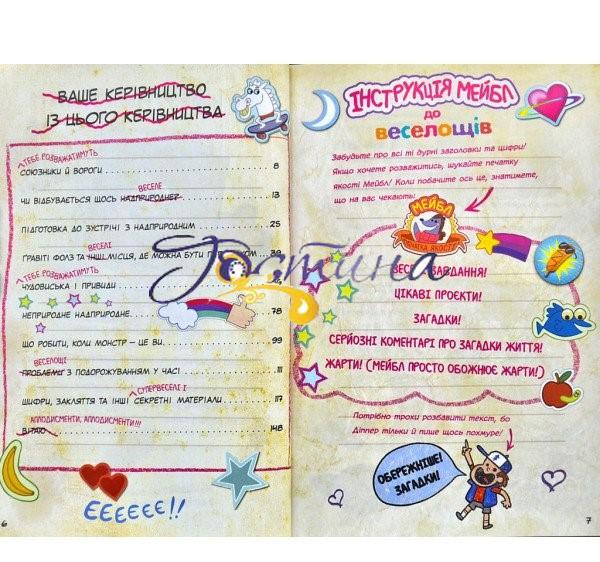 ВАШЕ КЕРІВНИЦТВО
ІЗ ЦЬОГО КЕРІВНИЦТВА
ТЕБЕ РОЗВАЖАТИМУТЬ
СОЮЗНИКИ Й ВОРОГИ 8
ВЕСЕЛЕ
ЧИ ВІДБУВАЄТЬСЯ ЩОСЬ НАДПРИРОДНЕ? 13
ПІДГОТОВКА ДО ЗУСТРІЧІ З НАДПРИРОДНИМ 25
ВЕСЕЛІ
ҐРАВІТІ ФОЛЗ ТА ІНШІ МІСЦЯ, ДЕ МОЖНА БУТИ
ТЕБЕ РОЗВАЖАТИМУТЬ
ЧУДОВИСЬКА І ПРИВИДИ
НЕПРИРОДНЕ НАДПРИРОДНЕ 78
ЩО РОБИТИ, КОЛИ МОНСТР – ЦЕ ВИ 99
ВЕСЕЛОЩІ
ПРОБЛЕМИ З ПОДОРОЖУВАННЯМ У ЧАСІ 111
СУПЕРВЕСЕЛІ І
ШИФРИ, ЗАКЛЯТТЯ ТА ІНШІ СЕКРЕТНІ МАТЕРІАЛИ 117
АПЛОДИСМЕНТИ, АПЛОДИСМЕНТИ!!!
ВІТАЮ 148
ЕЕЕЕЕЕ!!
6
ІНСТРУКЦІЯ МЕЙБЛ
ДО
ВЕСЕЛОЩІВ
Забудьте про всі ті дурні заголовки та цифри!
Якщо хочете розважитись, шукайте печатку
якості Мейбл! Коли побачите ось це, знатимете,
що на вас чекають:
МЕЙБЛ
ПЕЧАТКА ЯКОСТІ
ВЕСЕЛІ ЗАВДАННЯ!
ЦІКАВІ ПРОЄКТИ!
ЗАГАДКИ!
СЕРЙОЗНІ КОМЕНТАРІ ПРО ЗАГАДКИ ЖИТТЯ!
ЖАРТИ! (МЕЙБЛ ПРОСТО ОБОЖНЮЄ ЖАРТИ!)
Потрібно трохи розбавити текст, бо
Діппер тільки й пише щось похмуре!
ОБЕРЕЖНІШЕ!
ЗАГАДКИ!
7
Гостина